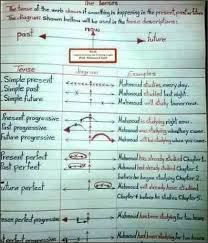 The Tenses
The tense of the verb shows if something is happening in the present, past
The diagram shown below will be used in the tense descriptions:
now
past
future
Tense
diagram
Examples
Simple present
Mahmoud studies every day.
Simple past
Mahmoud studied last night.
Simple future
Mahmoud will study tomorrow.
Present progressive
Mahmoud is studying right now.
Past progressive
Mahmoud was studying when they came.
Future progressive
Mahmoud will be studying when you come.
Present perfect
Mahmoud has already studied Chapter 1.
Past perfect
Mahmoud had already studied Chapter 1
before he began studying Chapter
future perfect
Mahmoud will already have studied
Chapter 4 before he studies Chapter 5.
perfect progressive
Mahmoud has been studying for two hours
perfect progressive
Mahmoud had been studying for two hours